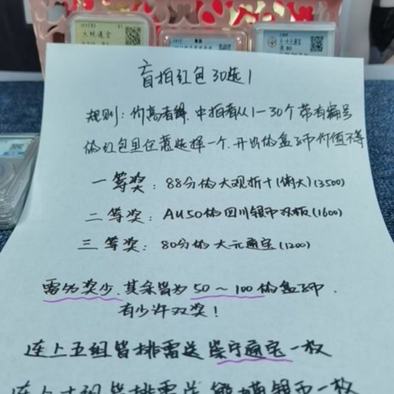 盲拍红包30选1
规则:价高者得.中拍者从1-30个带有编号
的红包里任意选择一个.开出的盒子币价值不等
一等奖:88分的大观折十(俐大)(3500)
二等奖:AU50的四川银币双板(1600)
三等奖:80分的大元通宝(1200)
需多奖少.其余皆为50~100的盒子币
有少许双奖!
连上五组皆排需送崇宁通宝一枚
连上十组皆排需送 银币一枚